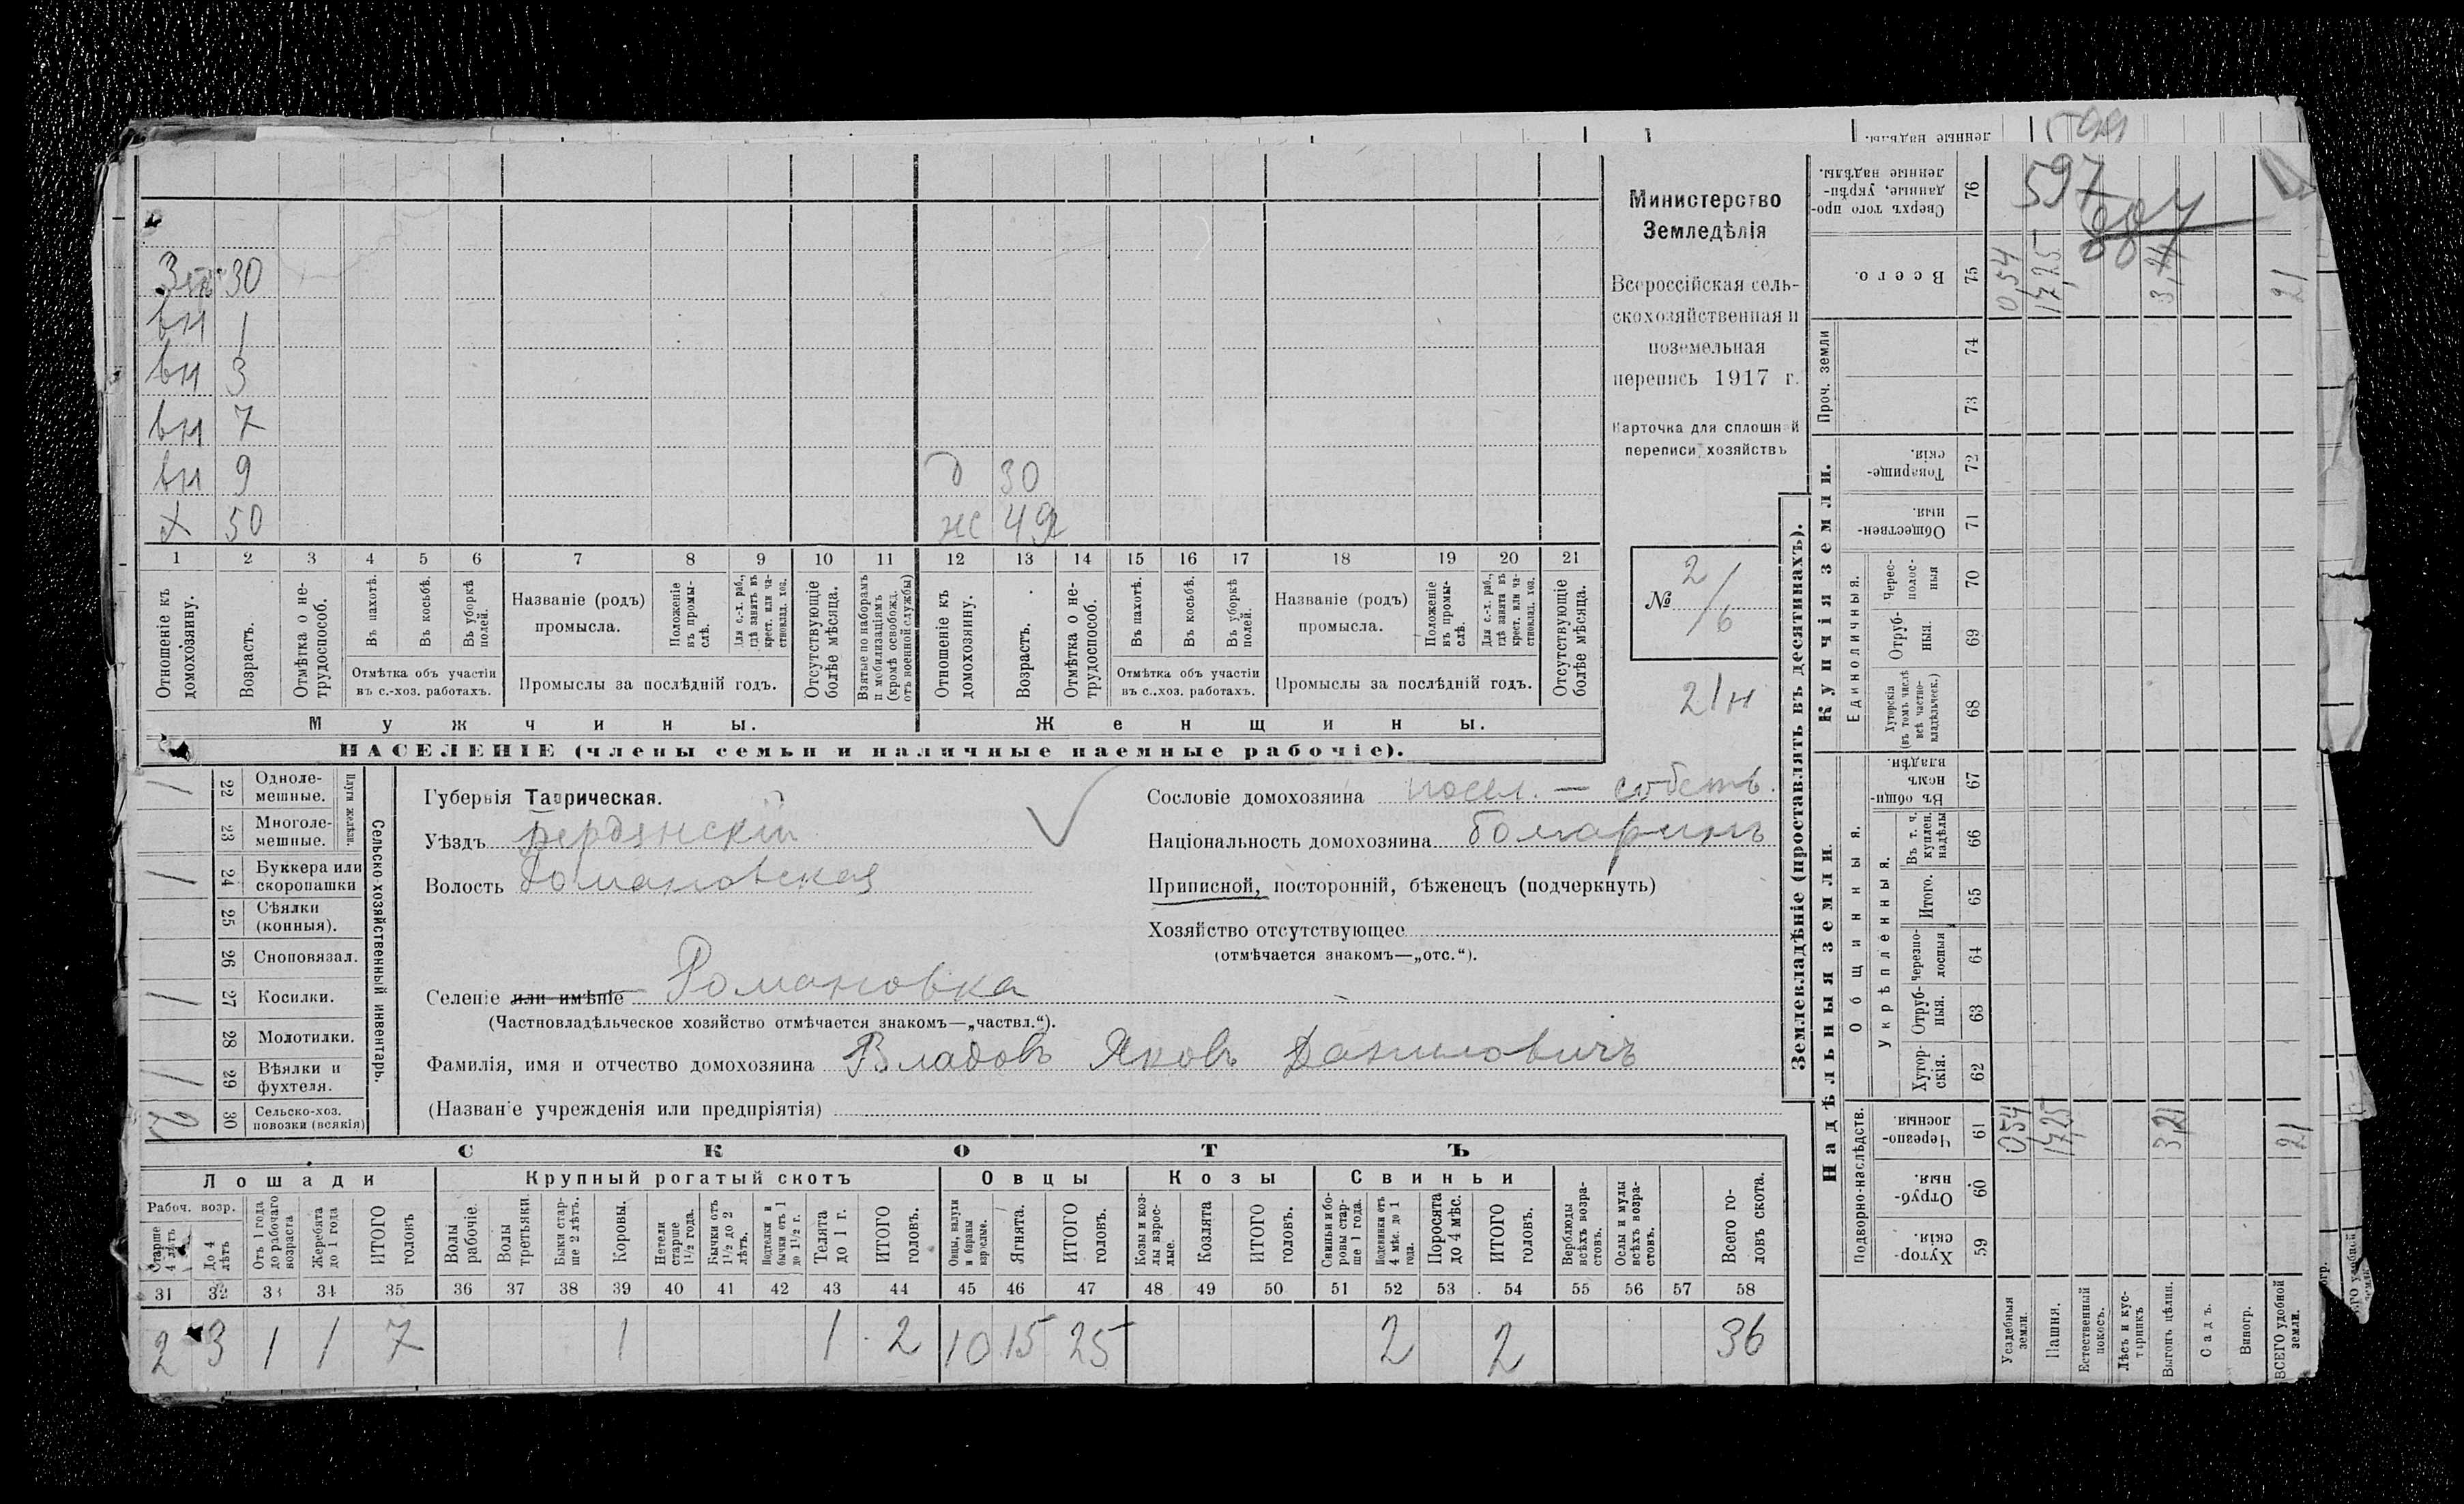 597
887
Министерство
Земледѣлія
Всероссійская сель-
скохозяйственная и
поземельная
перепись 1917 г.
Карточка для сплошной
переписи хозяйствъ
№ 2/6
21н
Зять 30
вн 1
вн 3
вн 7
вн 9
х 50
д 30
ж 49
1 2 3 4 5 6 7 8 9 10 11 12 13 14 15 16 17 18 19 20 21
Отношеніе къ домохозяину.
Возрастъ.
Отмѣтка о не-трудоспособ.
Въ пахотѣ.
Въ косьбѣ.
Въ уборкѣ полей.
Отмѣтка объ участіи въ с.-хоз. работахъ.
Названіе (родъ) промысла.
Положеніе въ промы-слѣ.
Для с.-х. раб., гдѣ занятъ въ крест. или ча-стновлад. хоз.
Промыслы за послѣдній годъ.
Отсутствующіе болѣе мѣсяца.
Взятые по наборамъ и мобилизаціямъ (кромѣ освобожд. отъ военной службы)
Отношеніе къ домохозяину.
Возрастъ.
Отмѣтка о не-трудоспособ.
Въ пахотѣ.
Въ косьбѣ.
Въ уборкѣ полей.
Отмѣтка объ участіи въ с.-хоз. работахъ.
Названіе (родъ) промысла.
Положеніе въ промы-слѣ.
Для с.-х. раб., гдѣ занята въ крест. или ча-стновлад. хоз.
Промыслы за послѣдній годъ.
Отсутствующіе болѣе мѣсяца.
Мужчины.
Женщины.
НАСЕЛЕНІЕ (члены семьи и наличные наемные рабочіе).
Сельско-хозяйственный инвентарь.
Плуги желѣзн.
22 Одноле-мешные. 1
23 Многоле-мешные.
24 Буккера или скоропашки 1
25 Сѣялки (конныя).
26 Сноповязал.
27 Косилки. 1
28 Молотилки.
29 Вѣялки и фухтеля. 1
30 Сельско-хоз. повозки (всякія) 2
Губернія Таврическая.
Уѣздъ Бердянскій
Волость Романовская
Сословіе домохозяина посел. — собств.
Національность домохозяина болгаринъ
Приписной, посторонній, бѣженецъ (подчеркнуть)
Хозяйство отсутствующее
(отмѣчается знакомъ—„отс.“).
Селеніе или имѣніе Романовка
(Частновладѣльческое хозяйство отмѣчается знакомъ—„частвл.“).
Фамилія, имя и отчество домохозяина Владовъ Яковъ Даниловичъ
(Названіе учрежденія или предпріятія)
СКОТЪ
Лошади
Крупный рогатый скотъ
Овцы
Козы
Свиньи
Рабоч. возр.
Старше 4 лѣтъ
До 4 лѣтъ
Отъ 1 года до рабочаго возраста
Жеребята до 1 года
ИТОГО головъ
Волы рабочіе.
Волы третьяки.
Быки стар-ше 2 лѣтъ.
Коровы.
Нетели старше 1½ года.
Бычки отъ 1½ до 2 лѣтъ.
Подтелки и бычки отъ 1 до 1½ г.
Телята до 1 г.
ИТОГО головъ.
Овцы, валухи и бараны взрослые.
Ягнята.
ИТОГО головъ.
Козы и коз-лы взрос-лые.
Козлята
ИТОГО головъ.
Свиньи и бо-ровы стар-ше 1 года.
Подсвинки отъ 4 мѣс. до 1 года.
Поросята до 4 мѣс.
ИТОГО головъ.
Верблюды всѣхъ возра-стовъ.
Ослы и мулы всѣхъ возра-стовъ.
Всего го-ловъ скота.
31 32 33 34 35 36 37 38 39 40 41 42 43 44 45 46 47 48 49 50 51 52 53 54 55 56 57 58
2 3 1 1 7 1 1 2 10 15 25 2 2 36
Землевладѣніе (проставлять въ десятинахъ).
Надѣльныя земли
Купчія земли.
Проч. земли
Подворно-наслѣдств.
Общинныя.
Укрѣпленныя.
Единоличныя.
59 Хутор-скія.
60 Отруб-ныя.
61 Черезпо-лосныя
62 Хутор-скія.
63 Отруб-ныя.
64 Черезпо-лосныя
65 Итого.
66 Въ т. ч. куплен. надѣлы
67 Въ общи-номъ владѣн.
68 Хуторскія (въ томъ числѣ всѣ частно-владѣльческ.)
69 Отруб-ныя.
70 Черес-полос-ныя
71 Обществен-ныя.
72 Товарище-скія.
73
74
75 Всего.
76 Сверхъ того про-данные, укрѣп-ленные надѣлы.
Усадебныя земли. 0,54 0,54
Пашня. 17,25 17,25
Естественный покосъ.
Лѣсъ и кус-тарникъ
Выгонъ цѣлин. 3,21
Садъ.
Виногр.
ВСЕГО удобной земли. 21 21
ленные надѣлы.
599